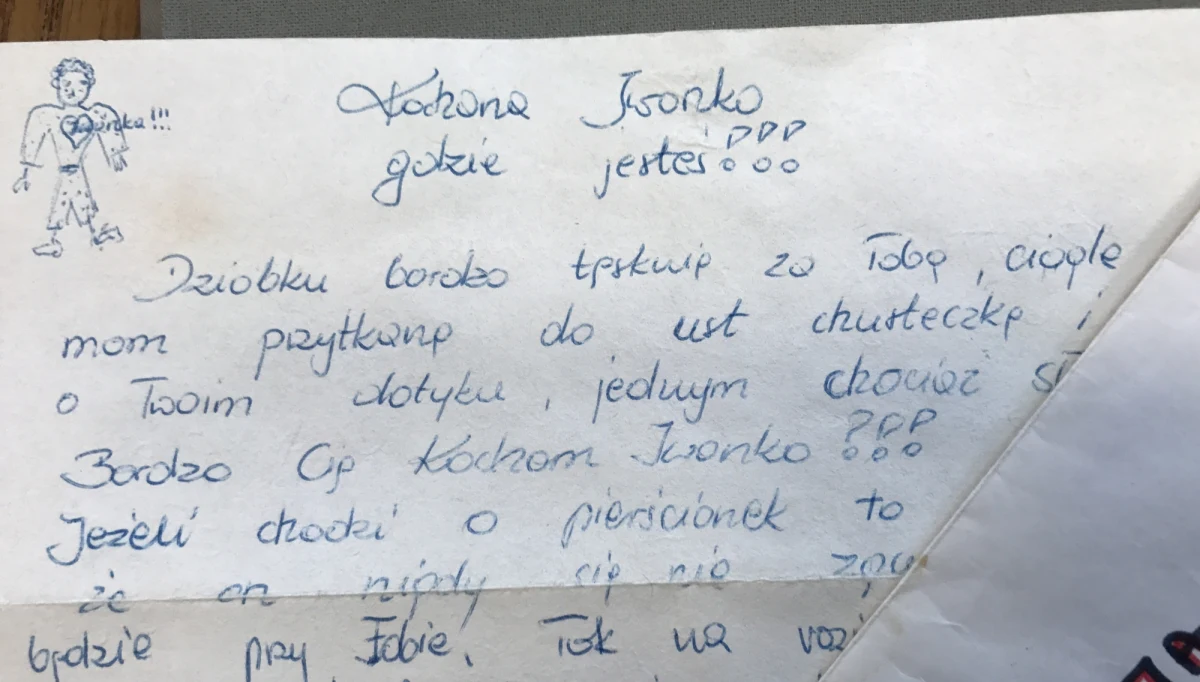 Iwonka!!!
Kochana Iwonko
gdzie jesteś!!!
Dziobku bardzo tęsknię za Tobą, ciągle
mam przytkaną do ust chusteczkę i
o Twoim dotyku, jednym chociaż
Bardzo Cię Kocham Iwonko!!!
Jeżeli chodzi o pierścionek to
że on nigdy się nie
będzie przy Tobie. Tak na